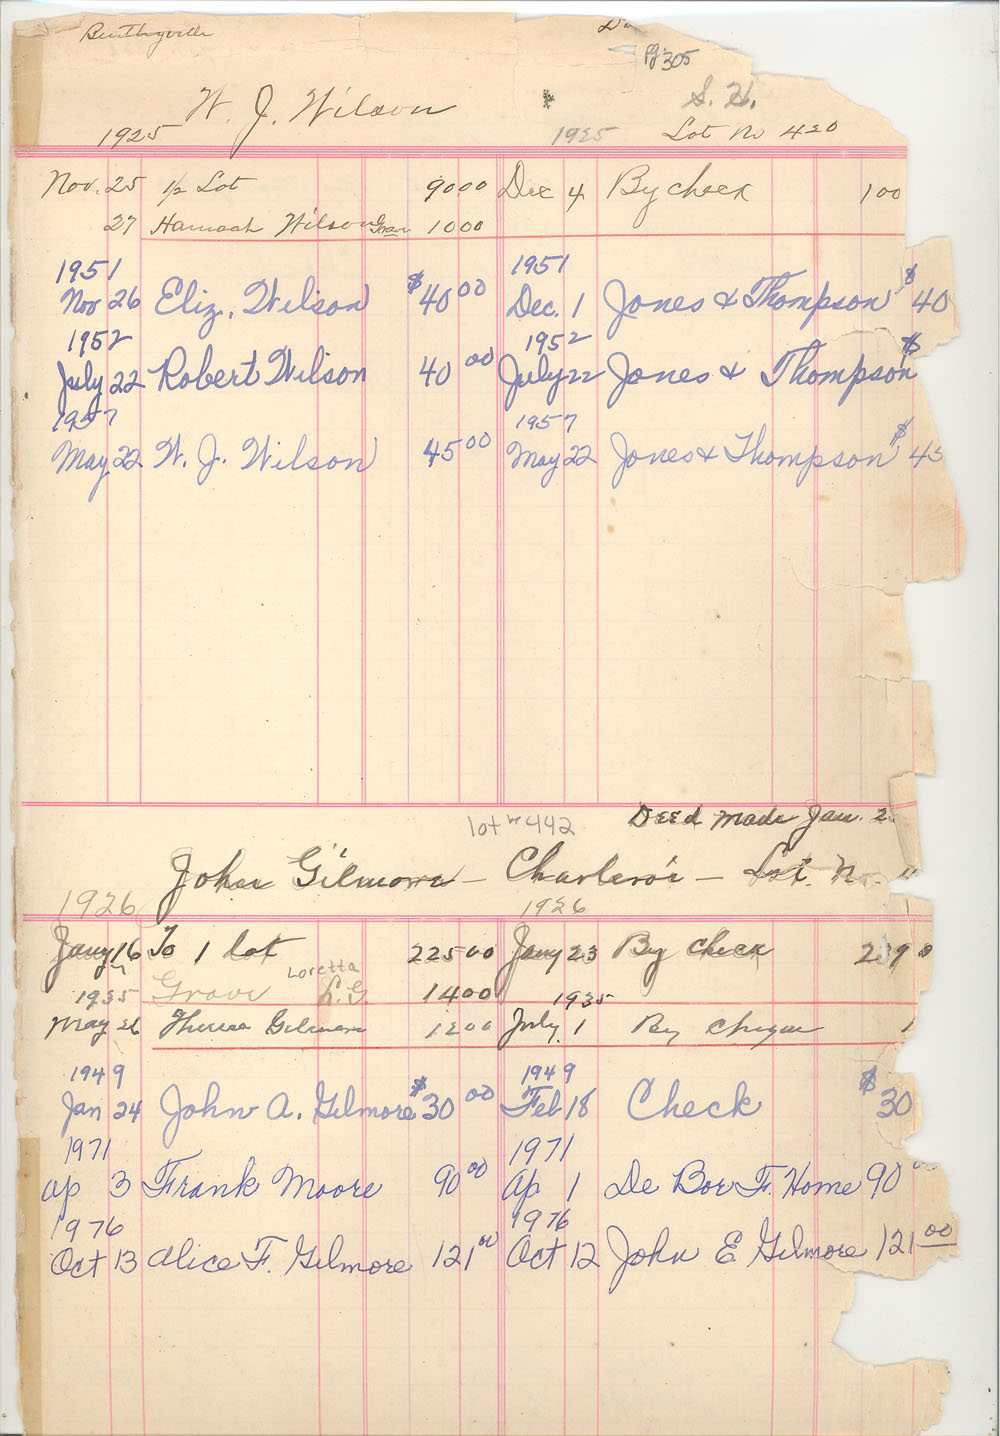 Pg 305
W. J. Wilson S. H.
1925 1925 Lot No 420
Nov. 25 1/2 Lot 90 00 Dec 4 By check 100
27 Hannah Wilson Grave 10 00
1951 1951
Nov 26 Eliz. Wilson $40 00 Dec. 1 Jones & Thompson $40
1952 1952
July 22 Robert Wilson 40 00 July 22 Jones & Thompson $
1957 1957
May 22 W. J. Wilson 45 00 May 22 Jones & Thompson $45
lot # 442 Deed made Jan. 2
John Gilmore - Charleroi - Lot. No. "
1926 1926
Jany 16 To 1 Lot 225 00 Jany 23 By check
Loretta
1935 Grave L. G. 14 00 1935
May 26 Theresa Gilmore 12 00 July 1 By Cheque 1
1949 1949
Jan 24 John A. Gilmore $30 00 Feb 18 Check $30
1971 1971
Ap 3 Frank Moore 90 00 Ap 1 De Bor F. Home 90 00
1976 1976
Oct 13 Alice F. Gilmore 121 00 Oct 12 John E Gilmore 121 00